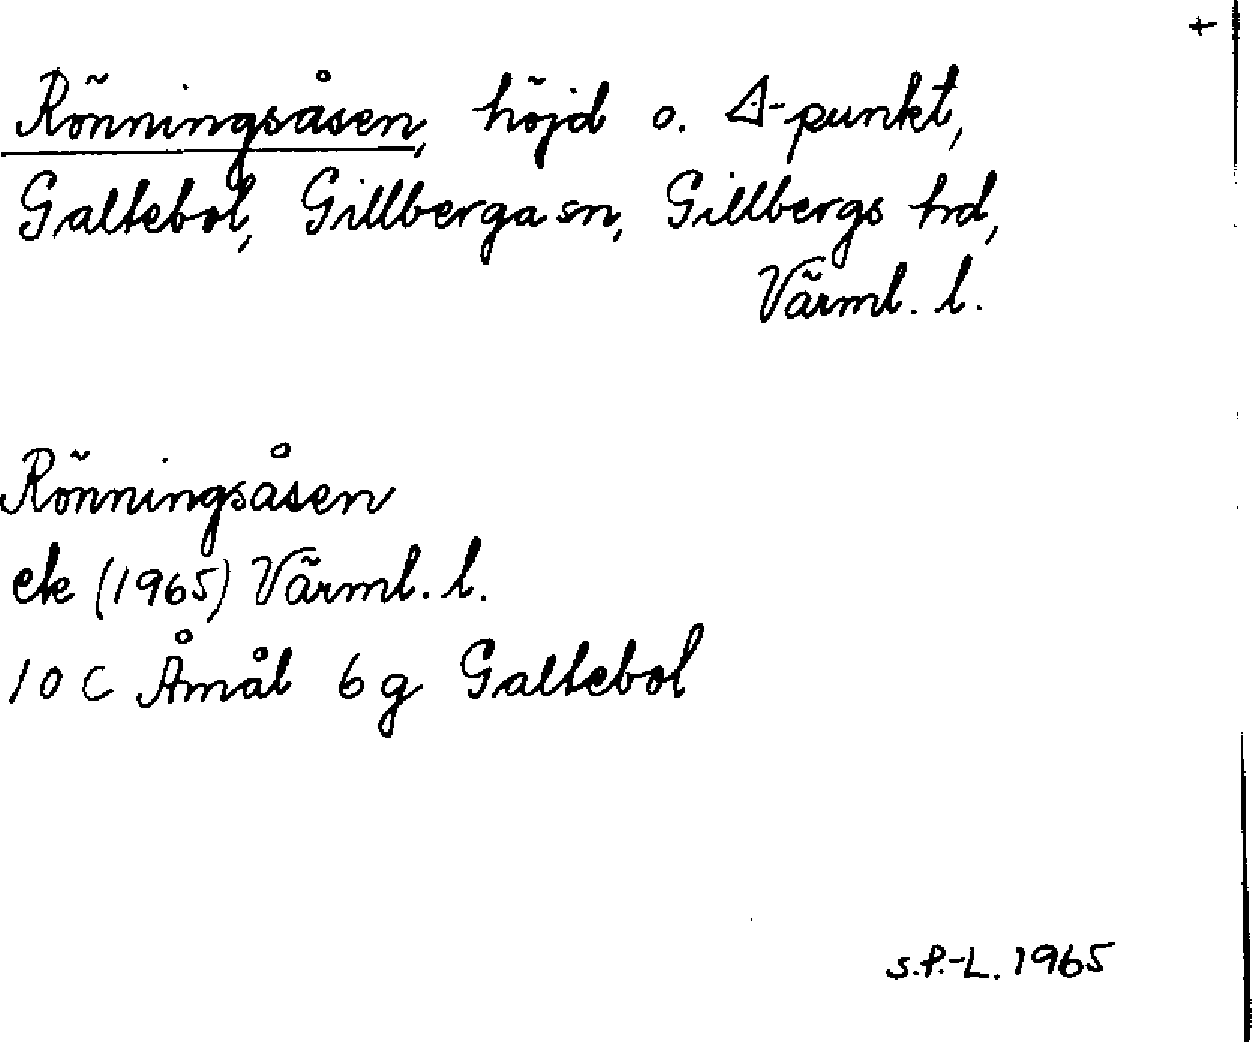 +
Rönningsåsen, höjd o. Δ-punkt,
Galtebol, Gillberga sn, Gillbergs hd,
Värml. l.
Rönningsåsen
ek (1965) Värml. l.
10 C Åmål 6 g Galtebol
S.P.-L. 1965